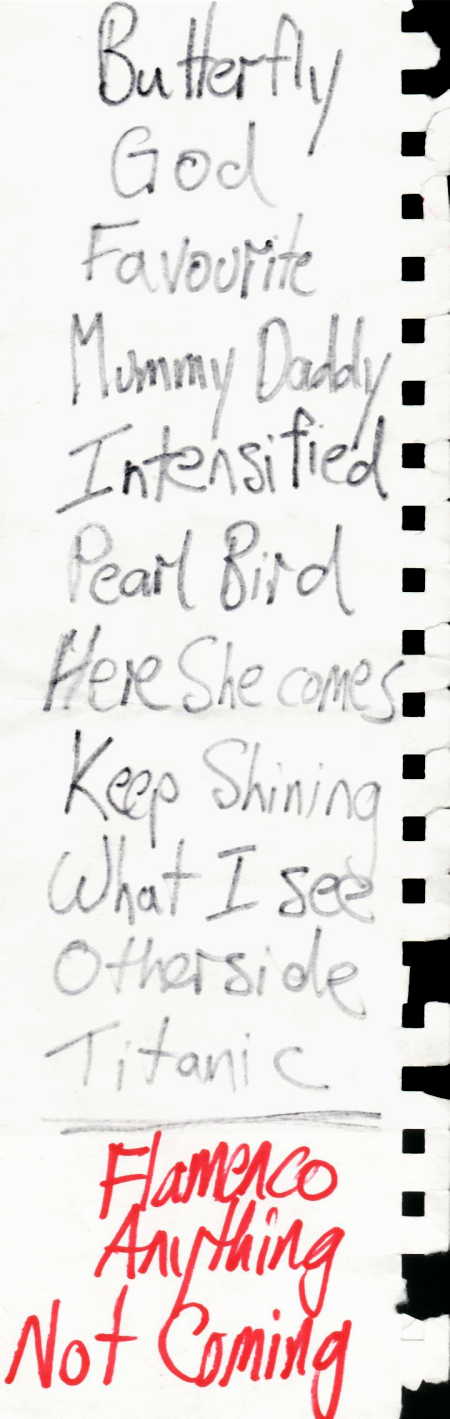 Butterfly
God
Favourite
Mummy Daddy
Intensified
Pearl Bird
Here She comes
Keep Shining
What I see
Otherside
Titanic
Flamenco
Anything
Not Coming